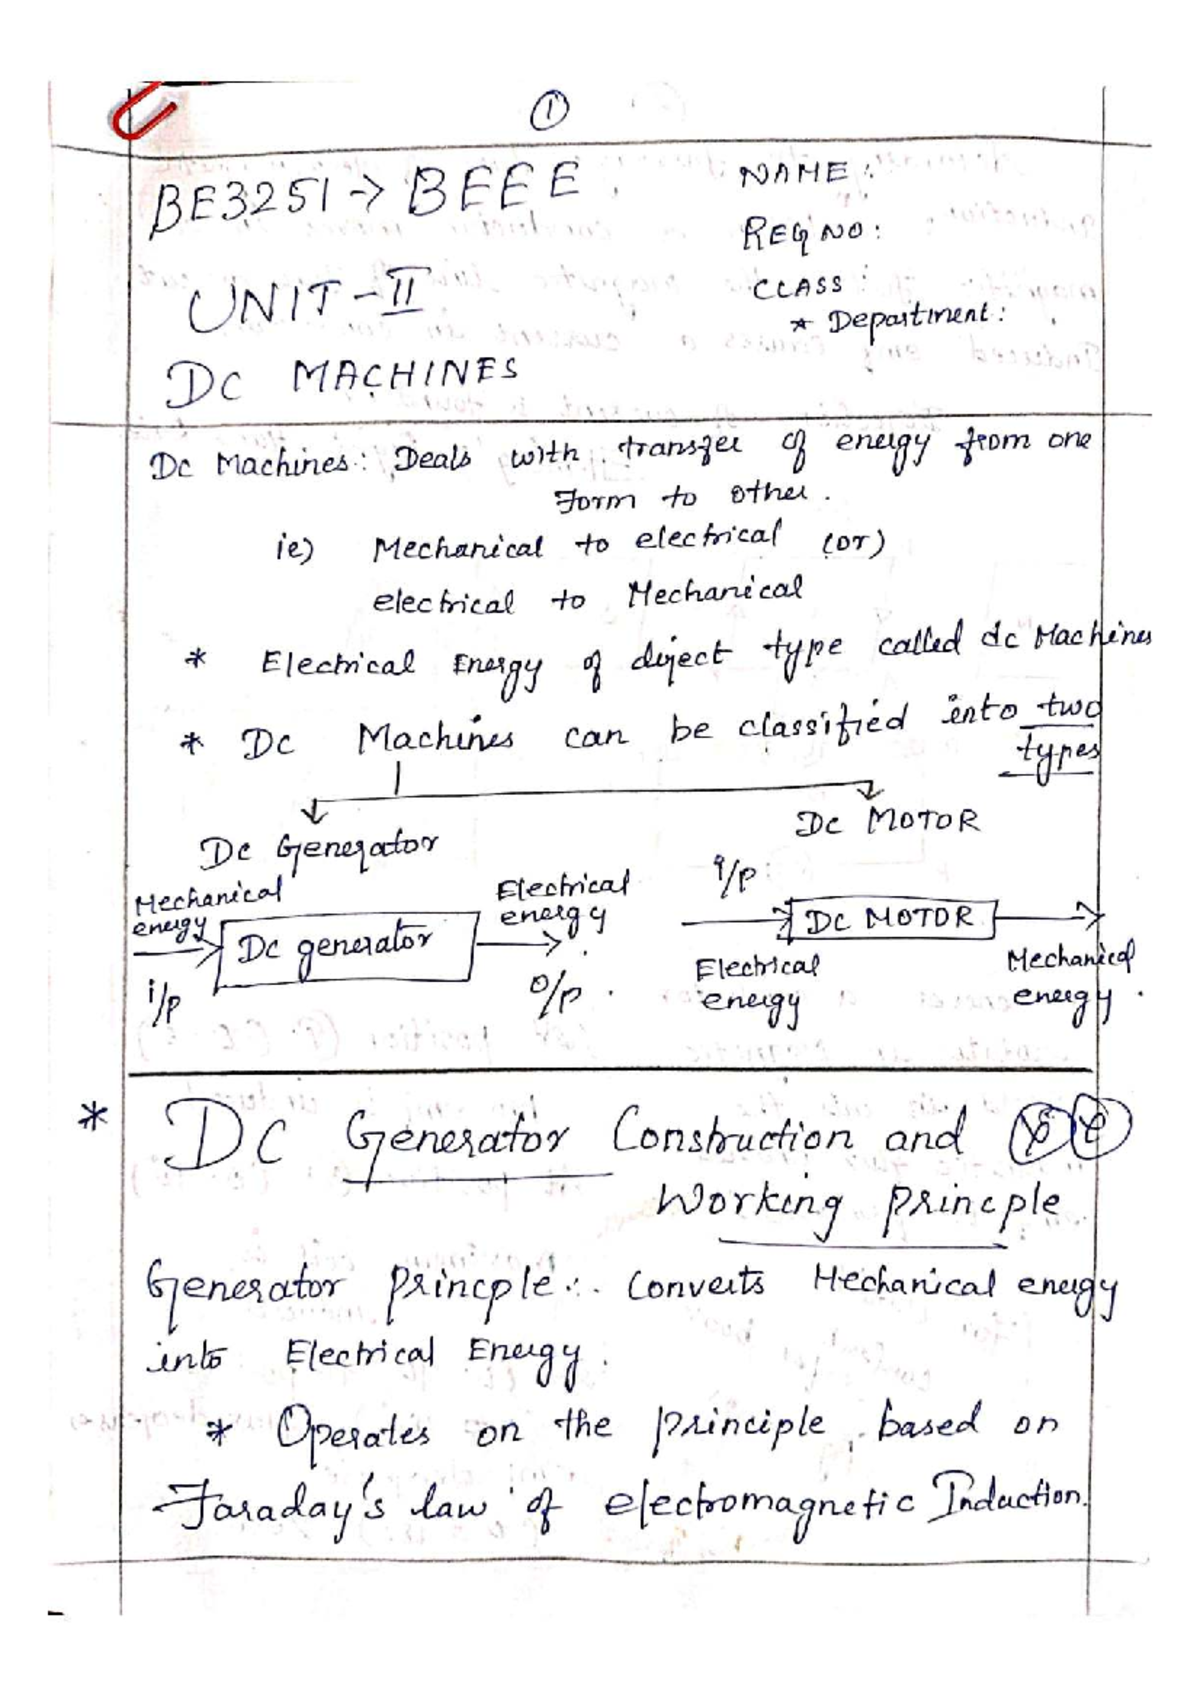 1
BE3251 → BEEE
NAME :
REG NO :
UNIT - II
CLASS :
* Department :
DC MACHINES
Dc Machines : Deals with transfer of energy from one
Form to other .
ie) Mechanical to electrical (or)
electrical to Mechanical
* Electrical Energy of direct type called dc Machines
* Dc Machines can be classified into two
types
Dc Generator
DC MOTOR
Mechanical energy
i/p
Dc generator
Electrical energy
o/p .
i/p
DC MOTOR
Electrical energy
Mechanical energy .
* DC Generator Construction and
Working princple
Generator princple :. Converts Mechanical energy
into Electrical Energy .
* Operates on the principle based on
Faraday's law of electromagnetic Induction.